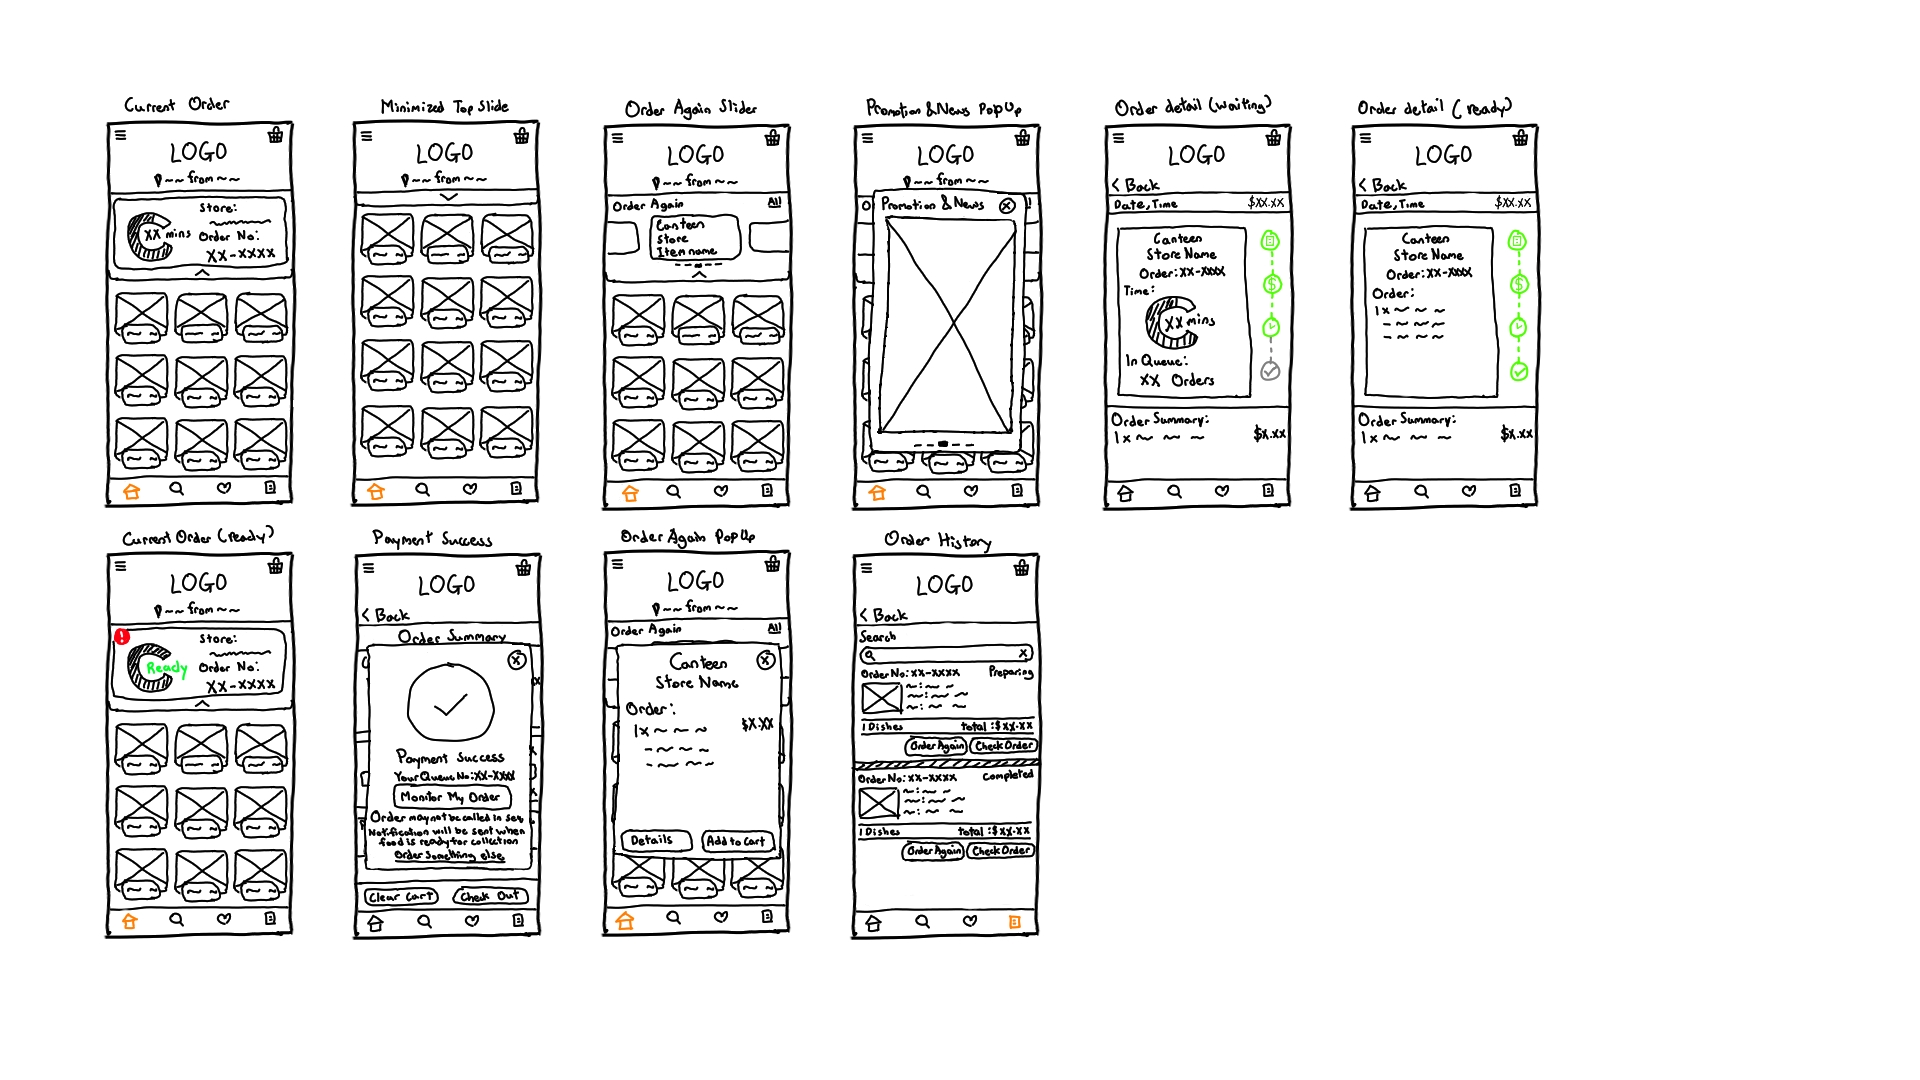 Current Order
LOGO
~~ from ~~
Store:
XX mins
Order No:
XX-XXXX
Minimized Top Slide
LOGO
~~ from ~~
Order Again Slider
LOGO
~~ from ~~
Order Again
All
Canteen
Store
Item name
Promotion & News PopUp
LOGO
~~ from ~~
Promotion & News
Order detail (waiting)
LOGO
< Back
Date, Time $XX.XX
Canteen
Store Name
Order: XX-XXXX
Time:
XX mins
In Queue:
XX Orders
Order Summary:
1x ~ ~ ~ $X.XX
Order detail (ready)
LOGO
< Back
Date, Time $XX.XX
Canteen
Store Name
Order: XX-XXXX
Order:
1x ~ ~ ~
Order Summary:
1x ~ ~ ~ $X.XX
Current Order (ready)
LOGO
~~ from ~~
!
Store:
Ready
Order No:
XX-XXXX
Payment Success
LOGO
< Back
Order Summary
Payment Success
Your Queue No: XX-XXXX
Monitor My Order
Order may not be called in seq
Notification will be sent when
food is ready for collection
Order Something else
Clear Cart Check Out
Order Again PopUp
LOGO
~~ from ~~
Order Again
All
Canteen
Store Name
Order:
1x ~ ~ ~ $X.XX
Details Add to Cart
Order History
LOGO
< Back
Search
Order No: XX-XXXX Preparing
1 Dishes total: $XX.XX
Order Again Check Order
Order No: XX-XXXX Completed
1 Dishes total: $XX.XX
Order Again Check Order